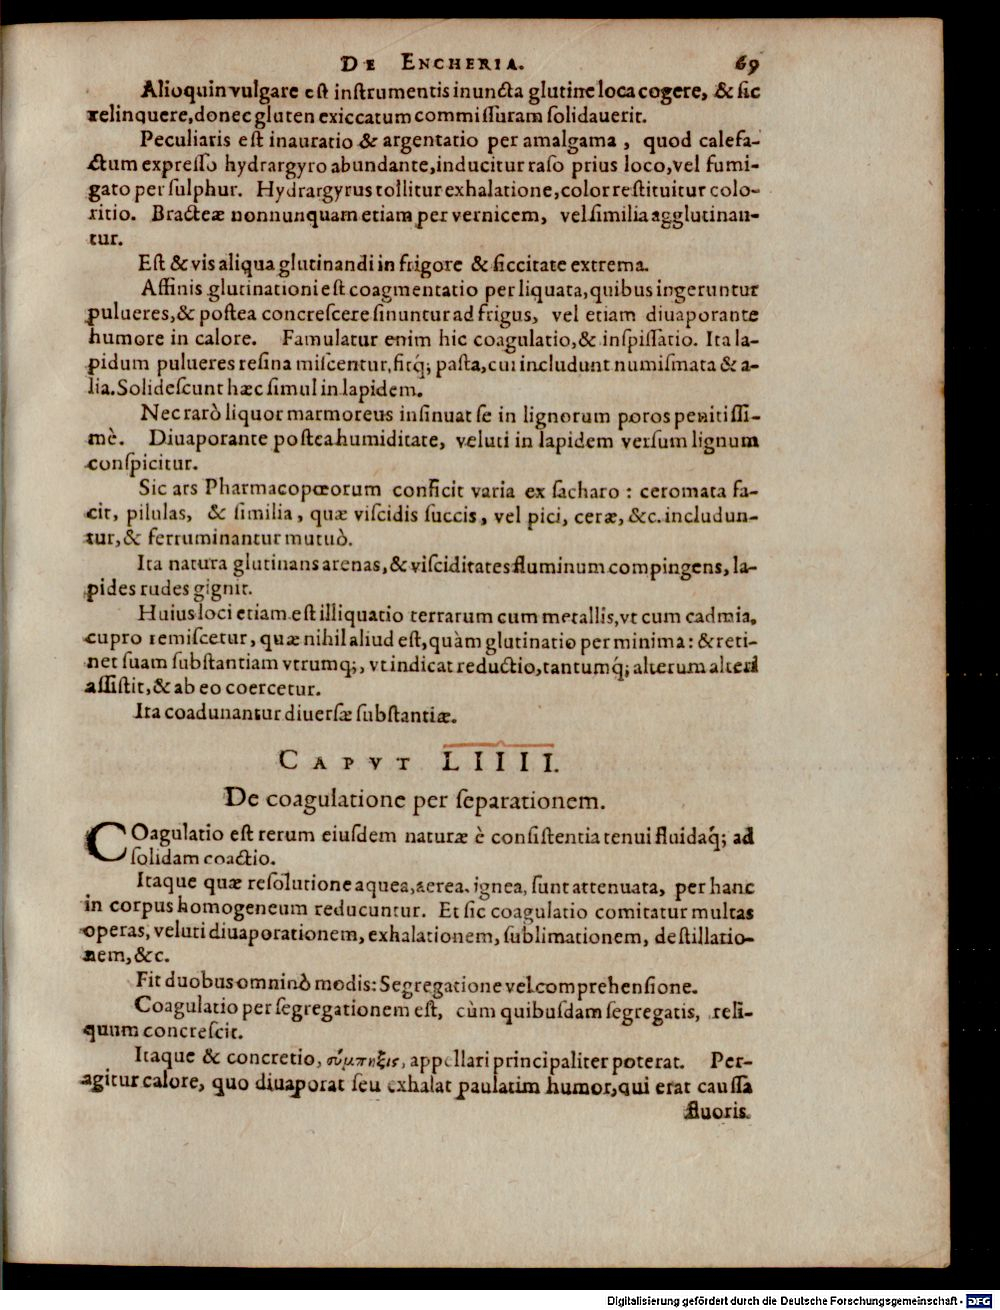 DE ENCHERIA. 69
Alioquin vulgare eſt inſtrumentis inuncta glutine loca cogere, & ſic
relinquere, donec gluten exiccatum commiſſuram ſolidauerit.
Peculiaris eſt inauratio & argentatio per amalgama, quod calefa-
ctum expreſſo hydrargyro abundante, inducitur raſo prius loco, vel fumi-
gato per ſulphur. Hydrargyrus tollitur exhalatione, color reſtituitur colo-
ritio. Bracteæ nonnunquam etiam per vernicem, vel ſimilia agglutinan-
tur.
Eſt & vis aliqua glutinandi in frigore & ſiccitate extrema.
Affinis glutinationi eſt coagmentatio per liquata, quibus ingeruntur
pulueres, & poſtea concreſcere ſinuntur ad frigus, vel etiam diuaporante
humore in calore. Famulatur enim hic coagulatio, & inſpiſſatio. Ita la-
pidum pulueres reſina miſcentur, fitq́; paſta, cui includunt numiſmata & a-
lia. Solideſcunt hæc ſimul in lapidem.
Nec rarò liquor marmoreus inſinuat ſe in lignorum poros penitiſſi-
mè. Diuaporante poſtea humiditate, veluti in lapidem verſum lignum
conſpicitur.
Sic ars Pharmacopœorum conficit varia ex ſacharo: ceromata fa-
cit, pilulas, & ſimilia, quæ viſcidis ſuccis, vel pici, ceræ, &c. includun-
tur, & ferruminantur mutuò.
Ita natura glutinans arenas, & viſciditates fluminum compingens, la-
pides rudes gignit.
Huius loci etiam eſt illiquatio terrarum cum metallis, vt cum cadmia,
cupro remiſcetur, quæ nihil aliud eſt, quàm glutinatio per minima: & reti-
net ſuam ſubſtantiam vtrumq;, vt indicat reductio, tantumq́; alterum alteri
aſſiſtit, & ab eo coercetur.
Ita coadunantur diuerſæ ſubſtantiæ.
CAPVT LIIII.
De coagulatione per ſeparationem.
COagulatio eſt rerum eiuſdem naturæ è conſiſtentia tenui fluidaq́; ad
ſolidam coactio.
Itaque quæ reſolutione aquea, aerea, ignea, ſunt attenuata, per hanc
in corpus homogeneum reducuntur. Et ſic coagulatio comitatur multas
operas, veluti diuaporationem, exhalationem, ſublimationem, deſtillatio-
nem, &c.
Fit duobus omninò modis: Segregatione vel comprehenſione.
Coagulatio per ſegregationem eſt, cùm quibuſdam ſegregatis, reli-
quum concreſcit.
Itaque & concretio, σύμπηξις, appellari principaliter poterat. Per-
agitur calore, quo diuaporat ſeu exhalat paulatim humor, qui erat cauſſa
fluoris.
Digitalisierung gefördert durch die Deutsche Forschungsgemeinschaft - DFG